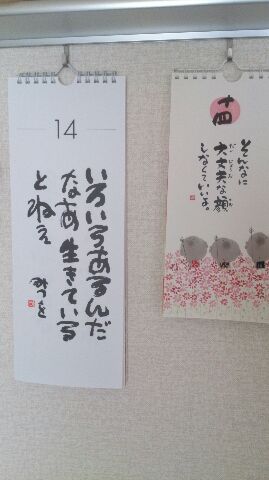 14
いろいろあるんだ
なあ生きている
とねえ
みつを
十四
そんなに
大丈夫な顔
だいじょうぶ
かお
しなくていいよ。